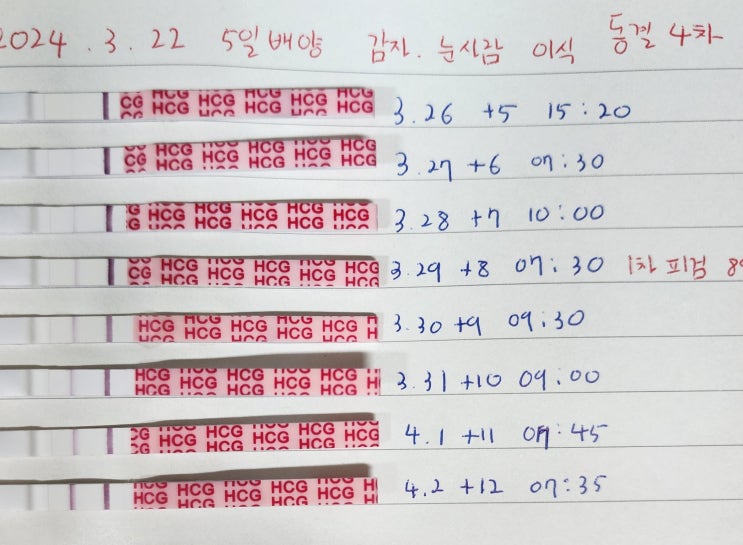 2024.3.22 5일배양 감자.눈사람 이식 동결 4차
CG HCG HCG HCG HCG HCG 3.26 +5 15:20
CG HCG HCG HCG HCG HCG 3.27 +6 07:30
G HCG HCG HCG HCG HCG 3.28 +7 10:00
CG HCG HCG HCG HCG HCG 3.29 +8 07:30 1차 피검
HCG HCG HCG HCG HCG H 3.30 +9 09:30
HCG HCG HCG HCG HCG H 3.31 +10 09:00
CG HCG HCG HCG HCG HCG 4.1 +11 07:45
HCG HCG HCG HCG HCG H 4.2 +12 07:35